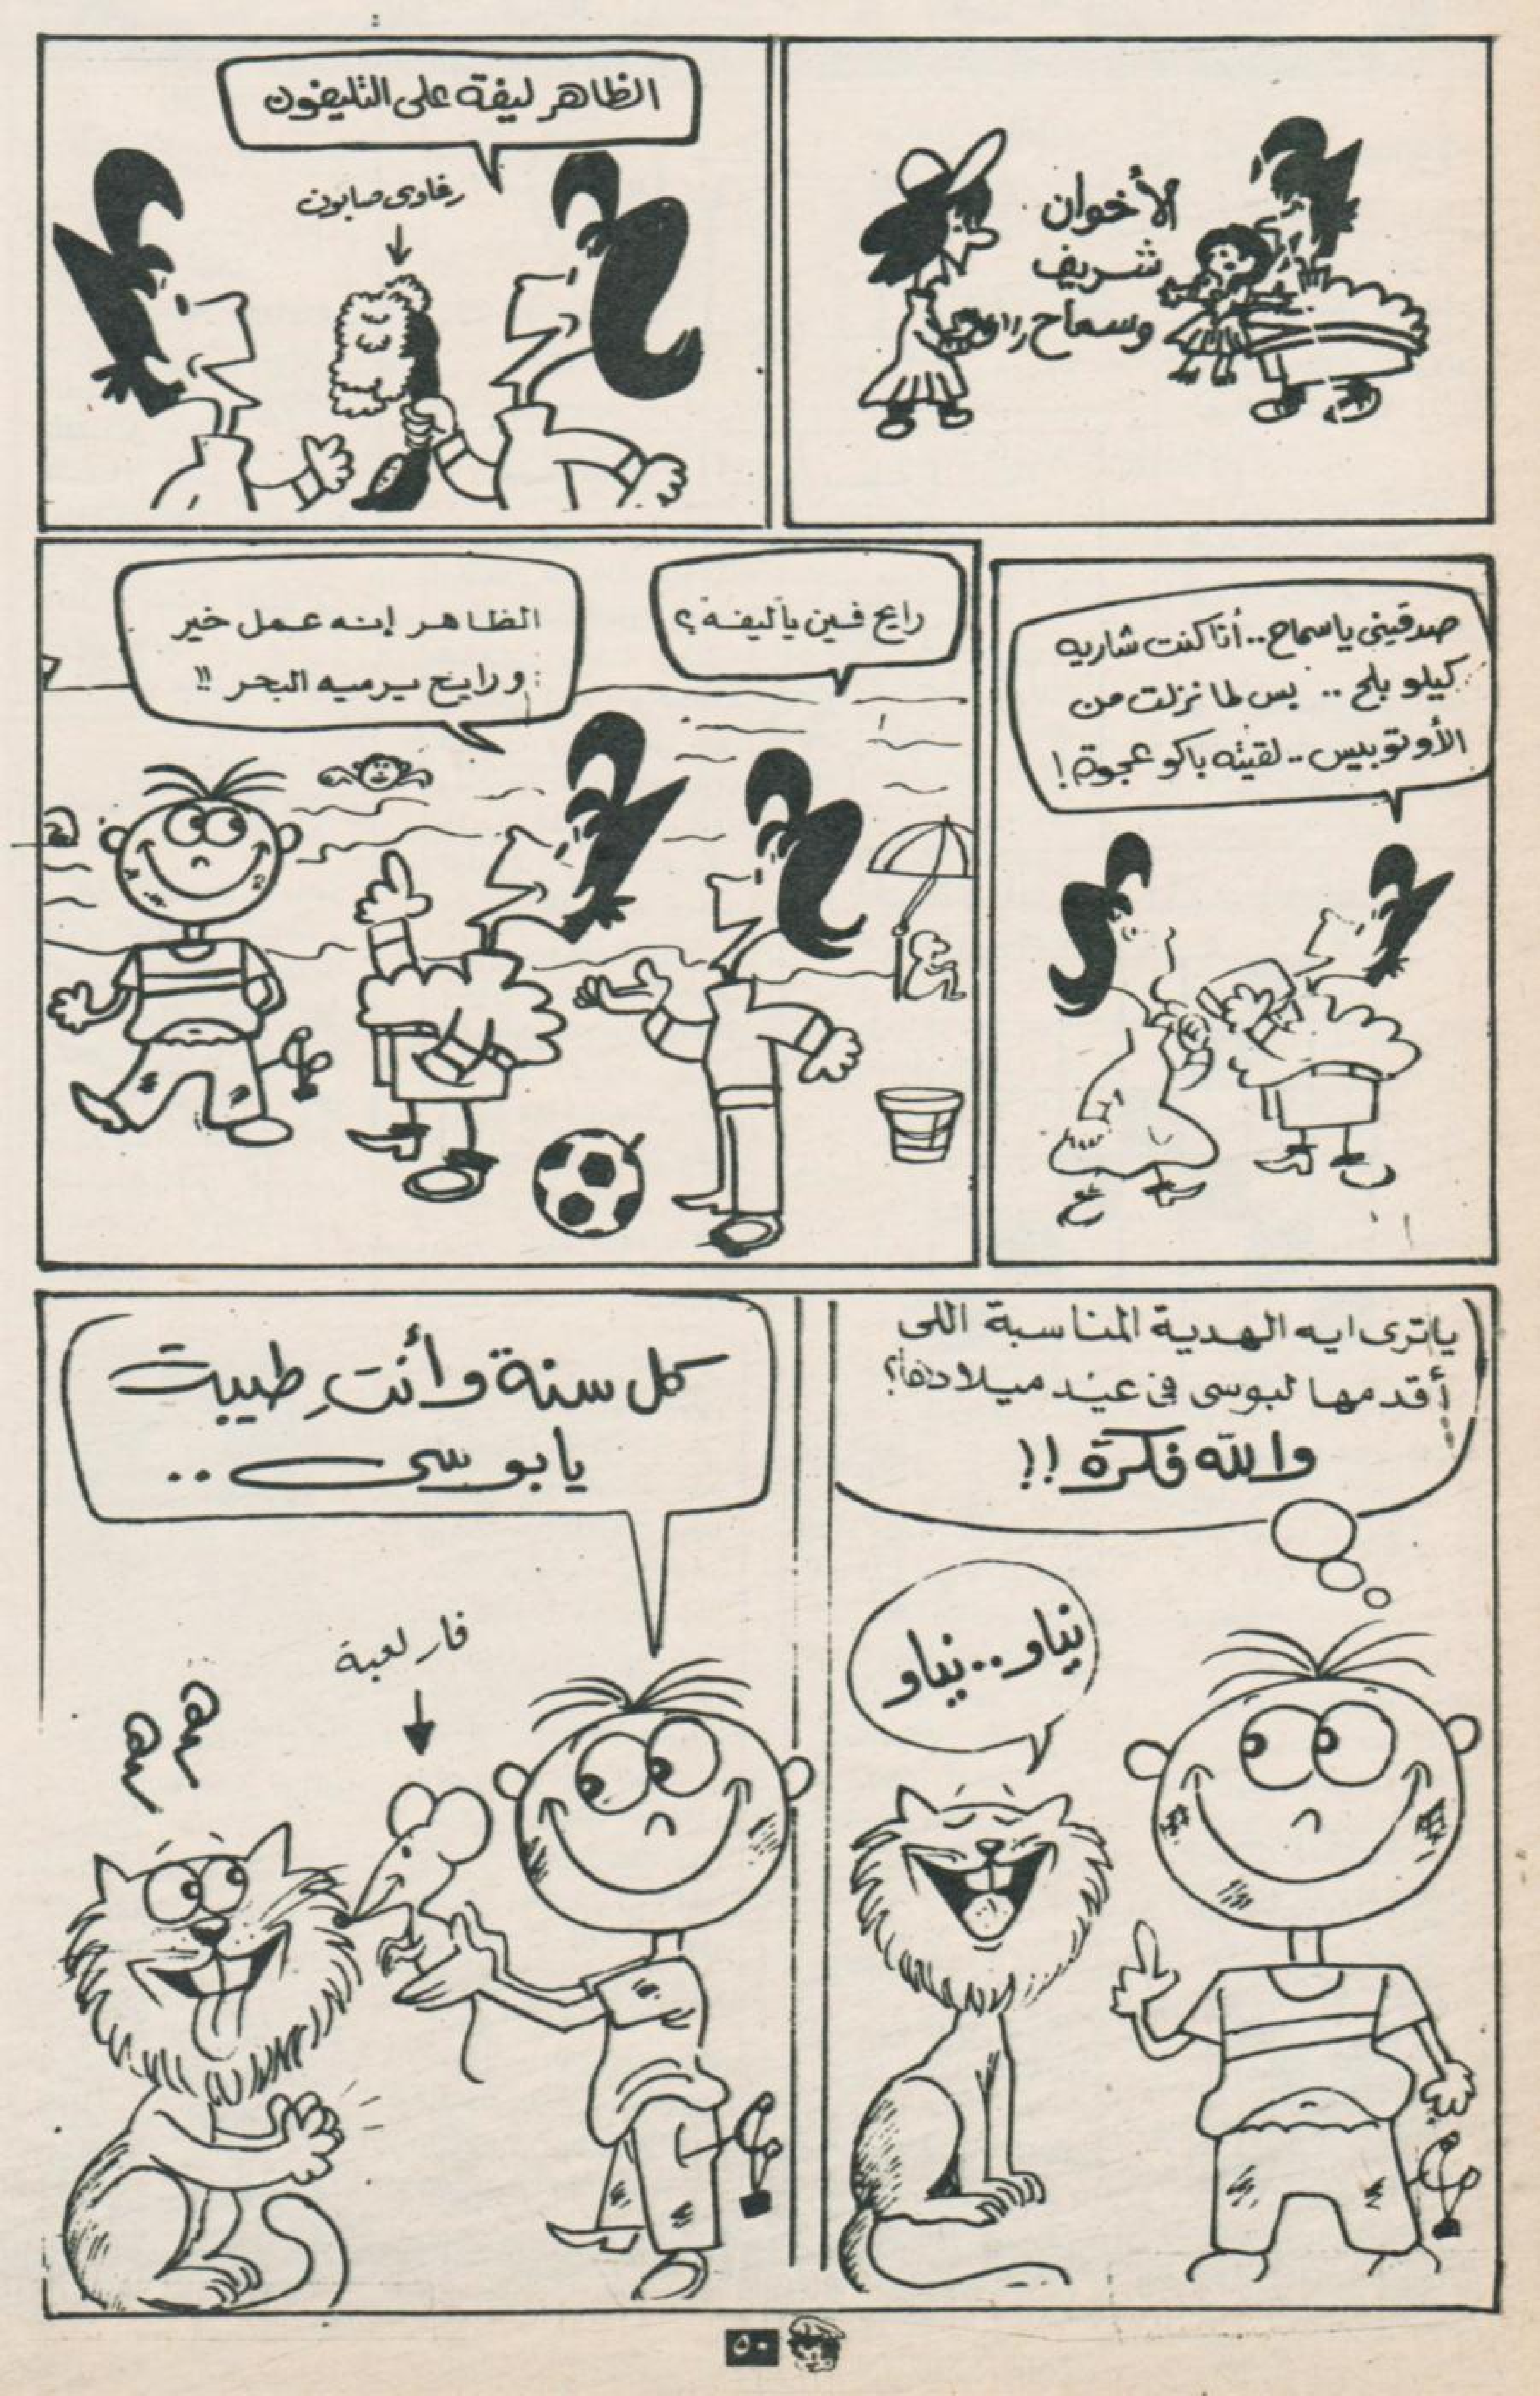 الأخوان
شريف
وسماح
الظاهر ليفة على التليفون
رغاوى صابون
صدقينى ياسماح.. أنا كنت شاريه
كيلو بلح .. بس لما نزلت من
الأوتوبيس .. لقيته باكو عجوة!
رايح فين ياليفة؟
الظاهر إنه عمل خير
ورايح يرميه البحر !!
ياترى ايه الهدية المناسبة اللى
أقدمها لبوسى فى عيد ميلادها؟
والله فكرة !!
نياو .. نياو
كل سنة وأنتِ طيبة
يابوسى ..
فار لعبة
٥٠